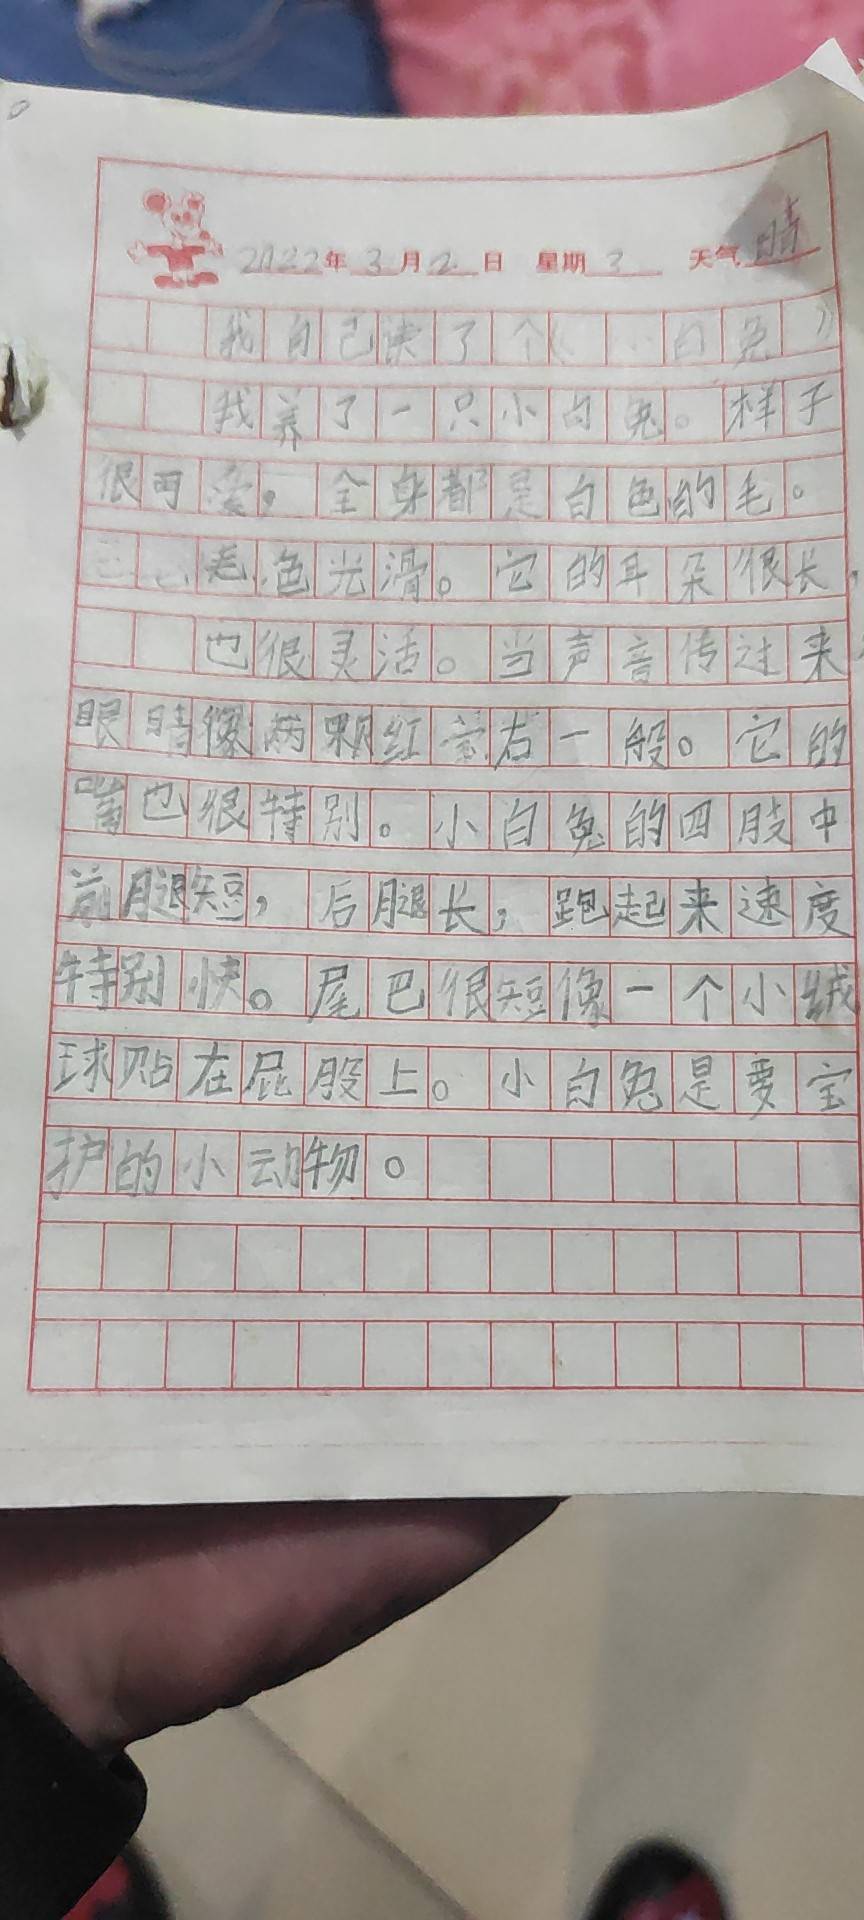 2022年3月2日 星期3 天气晴
我自己读了个《小白兔》
我养了一只小白兔。样子
很可爱，全身都是白色的毛。
毛色光滑。它的耳朵很长，
也很灵活。当声音传过来
眼睛像两颗红宝石一般。它的
嘴也很特别。小白兔的四肢中
前腿短，后腿长，跑起来速度
特别快。尾巴很短像一个小绒
球贴在屁股上。小白兔是要宝
护的小动物。